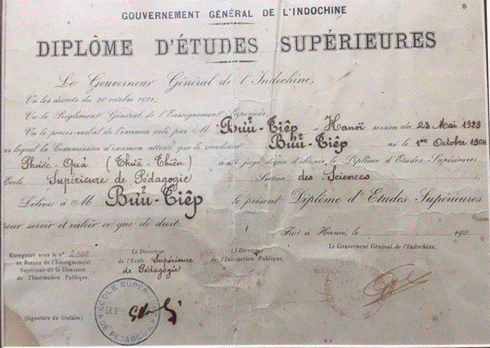 GOUVERNEMENT GÉNÉRAL DE L'INDOCHINE
DIPLÔME D'ÉTUDES SUPÉRIEURES
Le Gouverneur Général de l'Indochine,
Vu les décrets du 20 octobre 1911;
Vu le Règlement Général de l'Enseignement Supérieur;
Vu le procès-verbal de l'examen subi par M. Bửu-Tiêp à Hanoï session du 23 Mai 1928
lequel la Commission d'examen atteste que le candidat Bửu-Tiêp né le 1er Octobre 1904
à Phước-Quả (Thừa-Thiên) a été jugé digne d'obtenir le Diplôme d'Etudes Supérieures
Ecole Supérieure de Pédagogie Section des Sciences
Délivre à M. Bửu-Tiêp le présent Diplôme d'Etudes Supérieures
pour servir et valoir ce que de droit.
Fait à Hanoï, le 192
Enregistré sous le No
au Bureau de l'Enseignement
Supérieur de la Direction
de l'Instruction Publique.
Le Directeur
de l'Ecole Supérieure
de Pédagogie
Le Directeur
de l'Instruction Publique,
Le Gouverneur Général de l'Indochine,
(Signature du titulaire)
ECOLE SUPÉR
DE PÉDAGOGIE